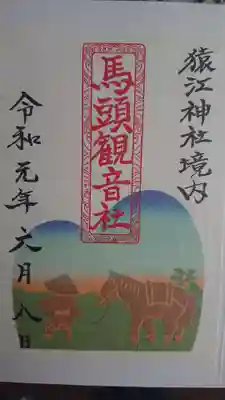 猿江神社境内
馬頭觀音社
令和元年六月八日